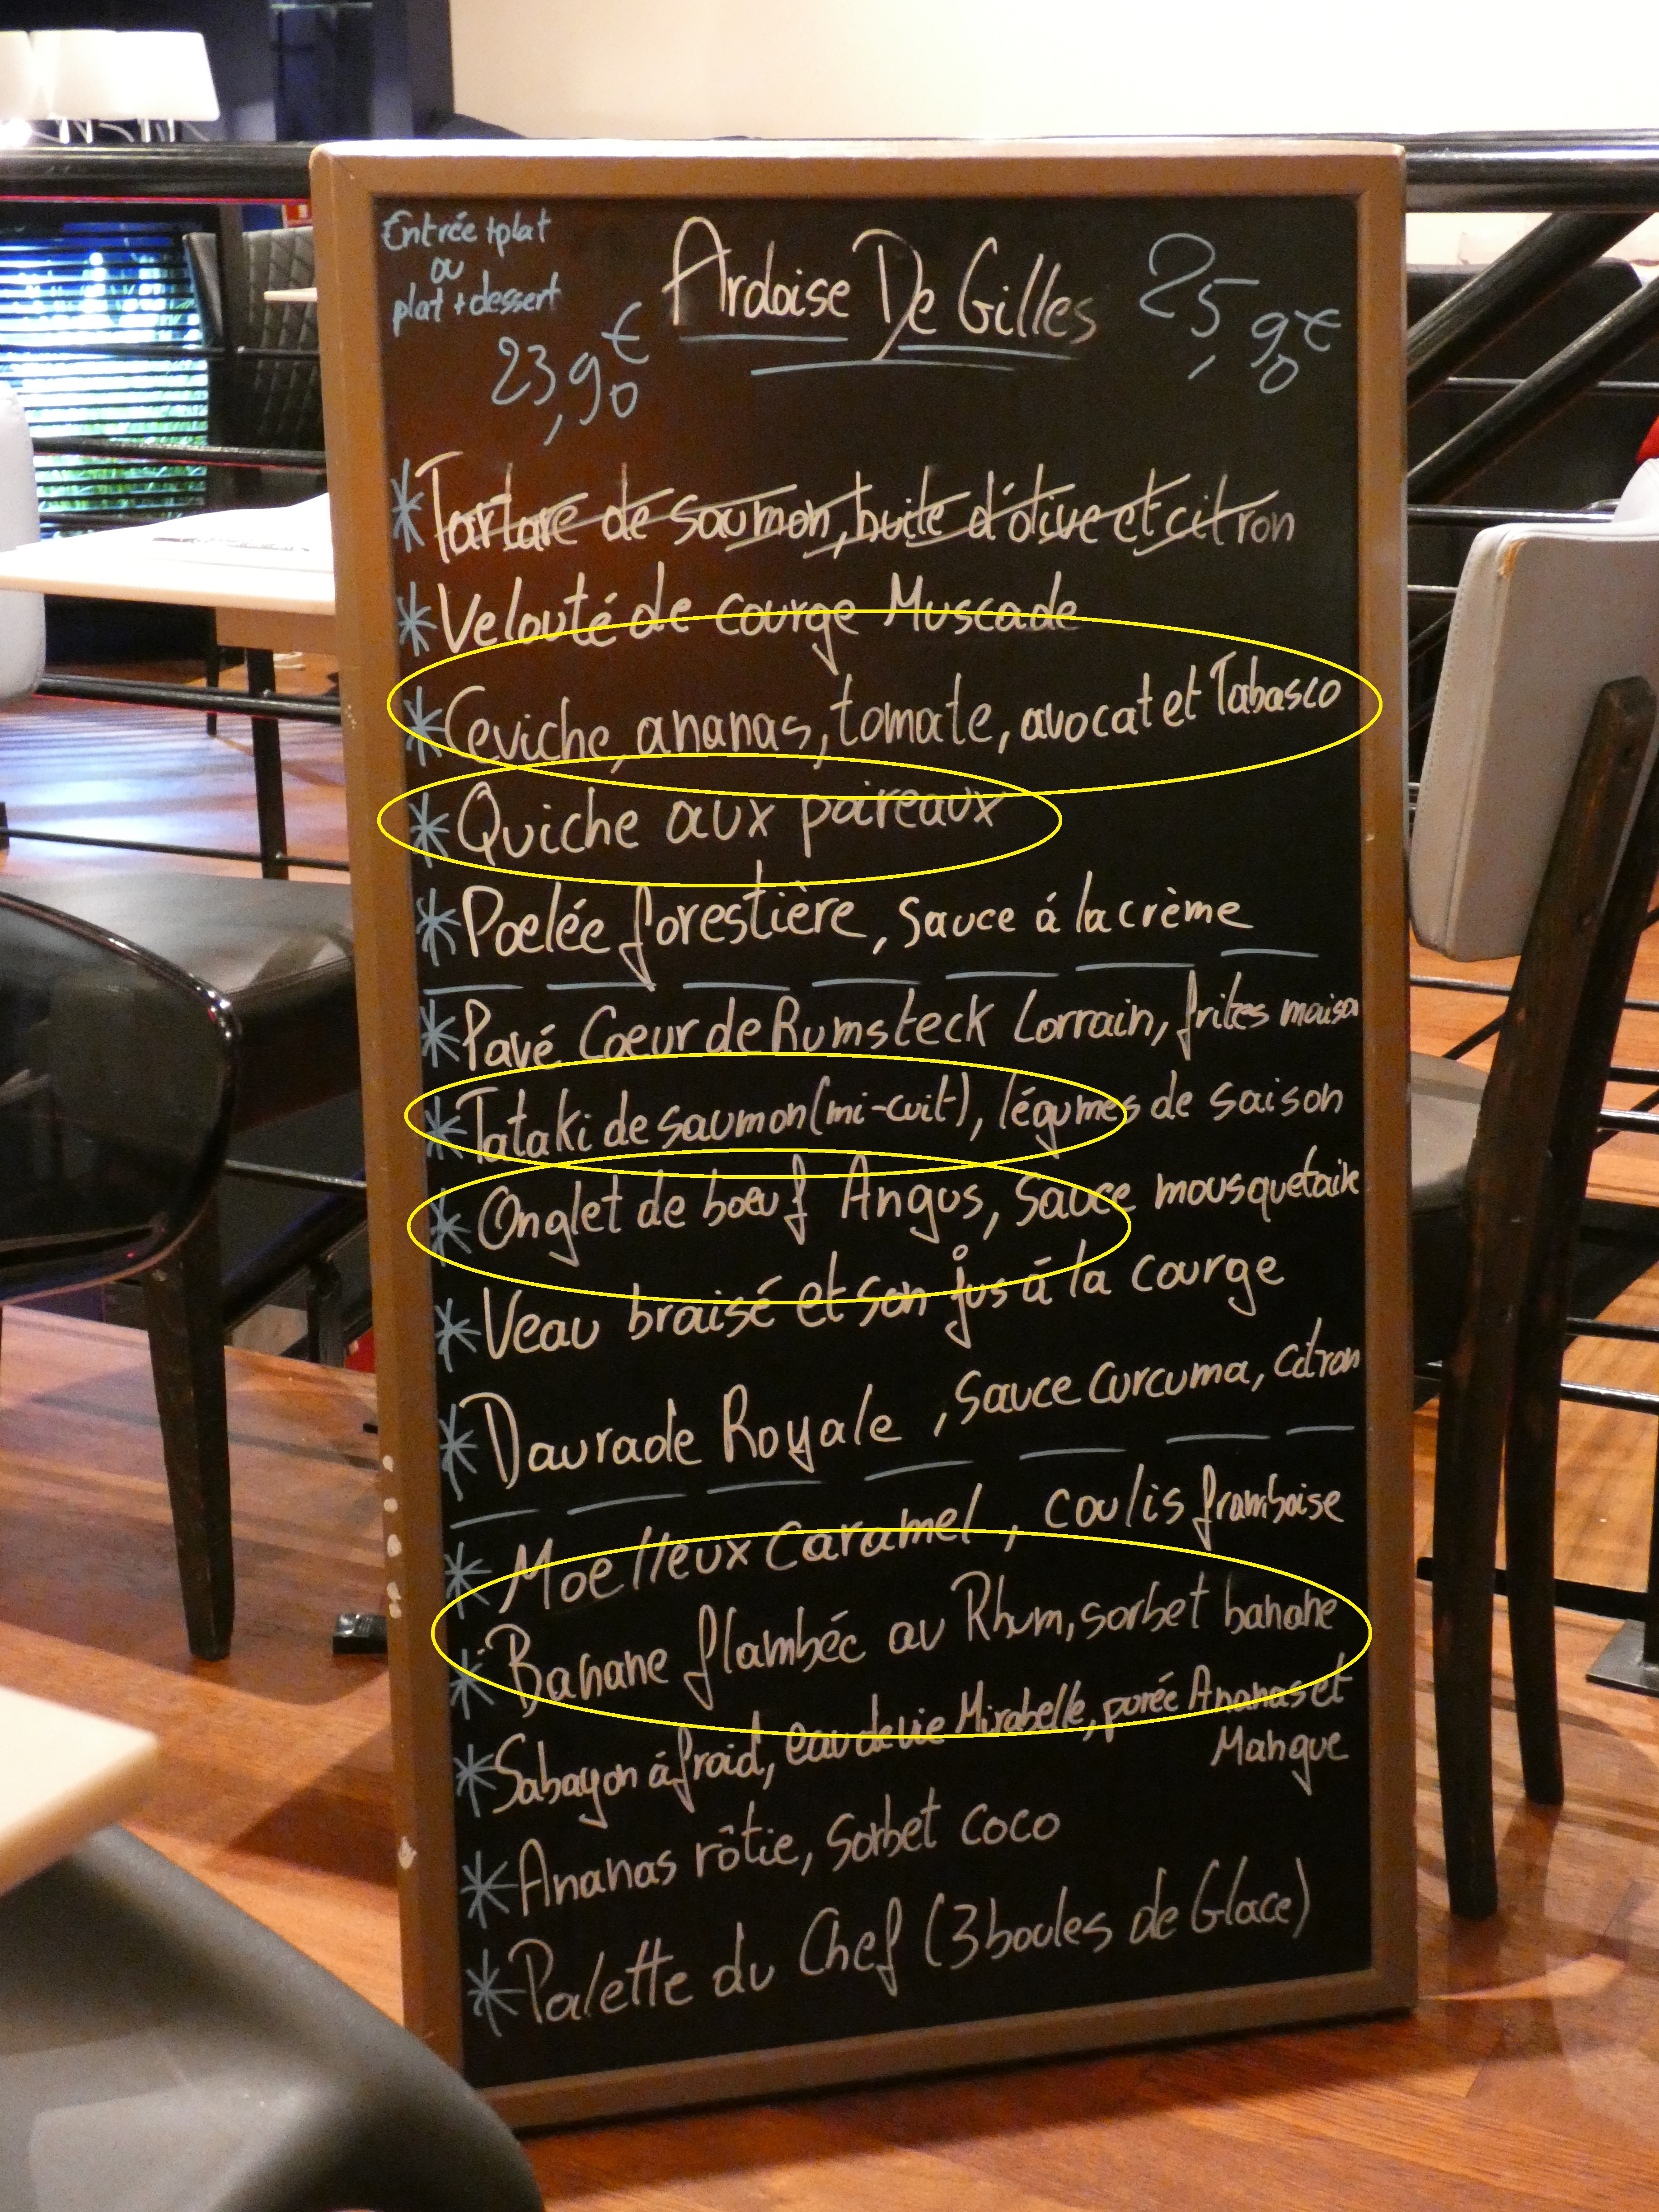 Entrée + plat
ou
plat + dessert
23,90€
Ardoise De Gilles
25,90€
Tartare de saumon, huile d'olive et citron
Velouté de courge Muscade
Ceviche, ananas, tomate, avocat et Tabasco
Quiche aux poireaux
Poelée forestière, sauce á la crème
Pavé Coeur de Rumsteck Lorrain, frites maison
Tataki de saumon (mi-cuit), légumes de saison
Onglet de boeuf Angus, Sauce mousquetaire
Veau braisé et son jus á la courge
Daurade Royale, Sauce Curcuma, citron
Moelleux Caramel, coulis framboise
Banane flambée au Rhum, sorbet banane
Sabayon á froid, eau de vie Mirabelle, purée Ananas et
Mangue
Ananas rôtie, Sorbet coco
Palette du Chef (3 boules de Glace)